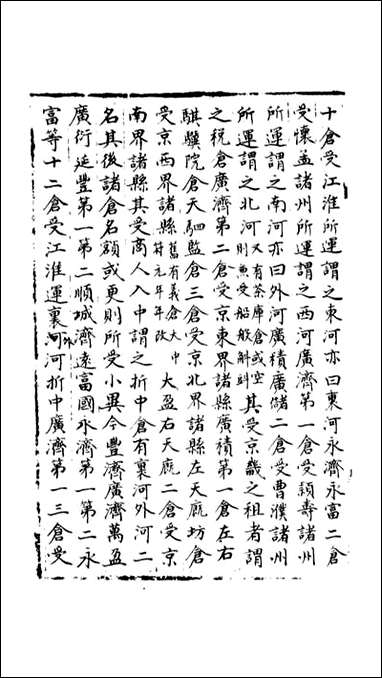 十倉受江淮所運謂之東河亦曰東河永濟永富二倉
受懷孟諸州所運謂之西河廣濟第一倉受潁壽諸州
所運謂之南河亦曰外河廣積廣儲二倉受曹濮諸州
所運謂之北河又有茶庫倉或空則兼受船般斛㪷其受京畿之租者謂
之稅倉廣濟第二倉受京東界諸縣廣積第一倉左右
騏驥院倉天駟監倉三倉受京北界諸縣左天廐坊倉
受京西界諸縣舊有義倉大中符元年年改大盈右天廐二倉受京
南界諸縣其受商人入中謂之折中倉有裏河外河二
名其後諸倉名額或更則所受小異今豐濟廣濟萬盈
廣衍延豐第一第二順城濟遠富國永濟第一第二永
富等十二倉受江淮運裏河河折中廣濟第一三倉受